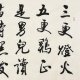 三更燈火
五更雞正
是男兒讀